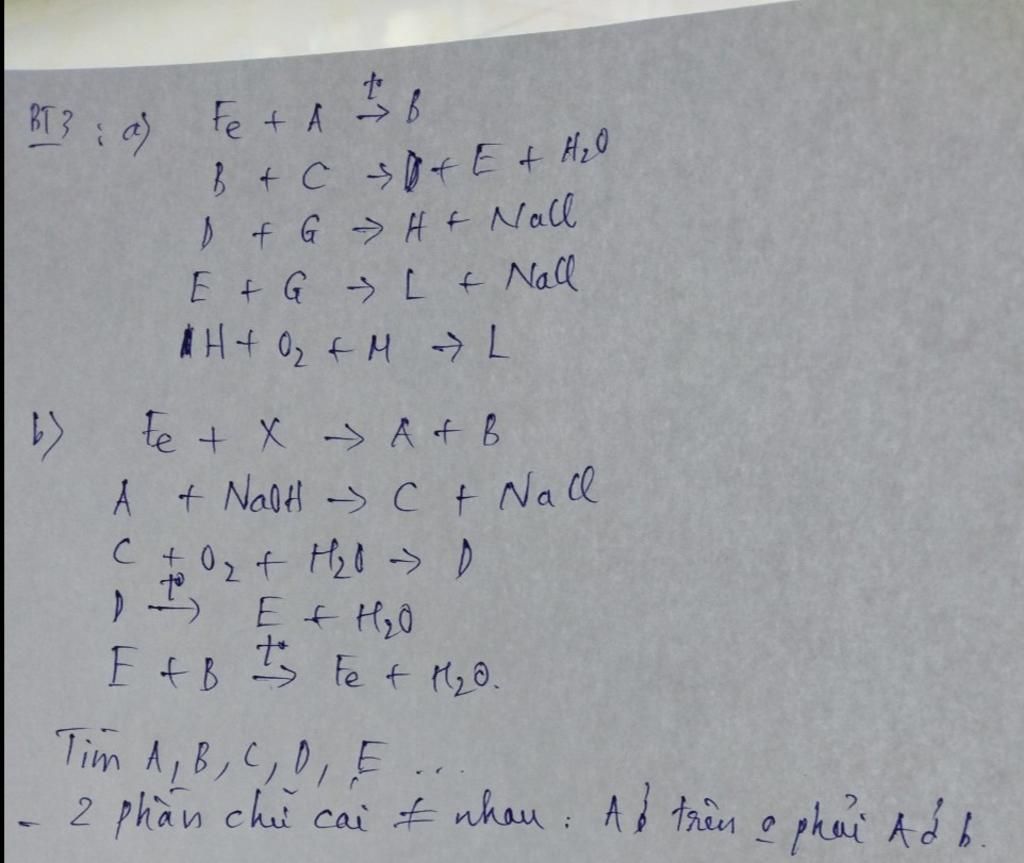 BT3 : a) Fe + A t°→ B
B + C → D + E + H₂O
D + G → H + NaCl
E + G → L + NaCl
H + O₂ + M → L
b) Fe + X → A + B
A + NaOH → C + NaCl
C + O₂ + H₂O → D
D t°→ E + H₂O
E + B t°→ Fe + H₂O.
Tìm A, B, C, D, E ...
- 2 phần chữ cái ≠ nhau : A ở trên o phải A ở b.